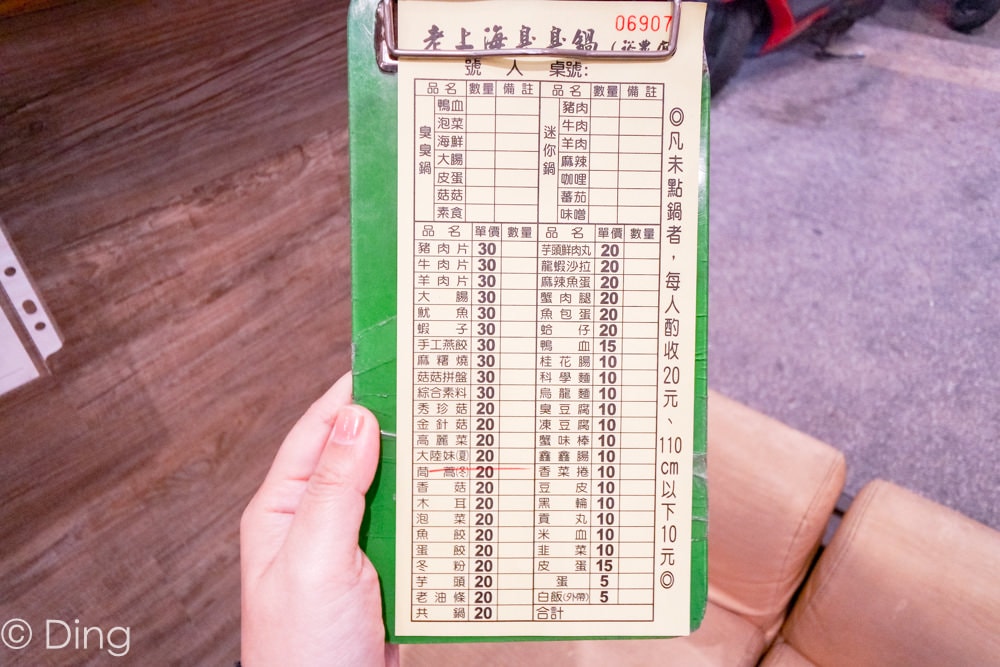 06907
老上海臭臭鍋
號 人 桌號:
品名 數量 備註 品名 數量 備註
臭臭鍋
鴨血
泡菜
海鮮
大腸
皮蛋
菇菇
素食
迷你鍋
豬肉
牛肉
羊肉
麻辣
咖哩
蕃茄
味噌
品名 單價 數量 品名 單價 數量
豬肉片 30 芋頭鮮肉丸 20
牛肉片 30 龍蝦沙拉 20
羊肉片 30 麻辣魚蛋 20
大腸 30 蟹肉腿 20
魷魚 30 魚包蛋 20
蝦子 30 蛤仔 20
手工燕餃 30 鴨血 15
麻糬燒 30 桂花腸 10
菇菇拼盤 30 科學麵 10
綜合素料 30 烏龍麵 10
秀珍菇 20 臭豆腐 10
金針菇 20 凍豆腐 10
高麗菜 20 蟹味棒 10
大陸妹(夏) 20 鑫鑫腸 10
茼蒿(冬) 20 香菜捲 10
香菇 20 豆皮 10
木耳 20 黑輪 10
泡菜 20 貢丸 10
魚餃 20 米血 10
蛋餃 20 韭菜 10
冬粉 20 皮蛋 15
芋頭 20 蛋 5
老油條 20 白飯(外帶) 5
共鍋 20 合計
◎凡未點鍋者，每人酌收20元、110cm以下10元◎
© Ding